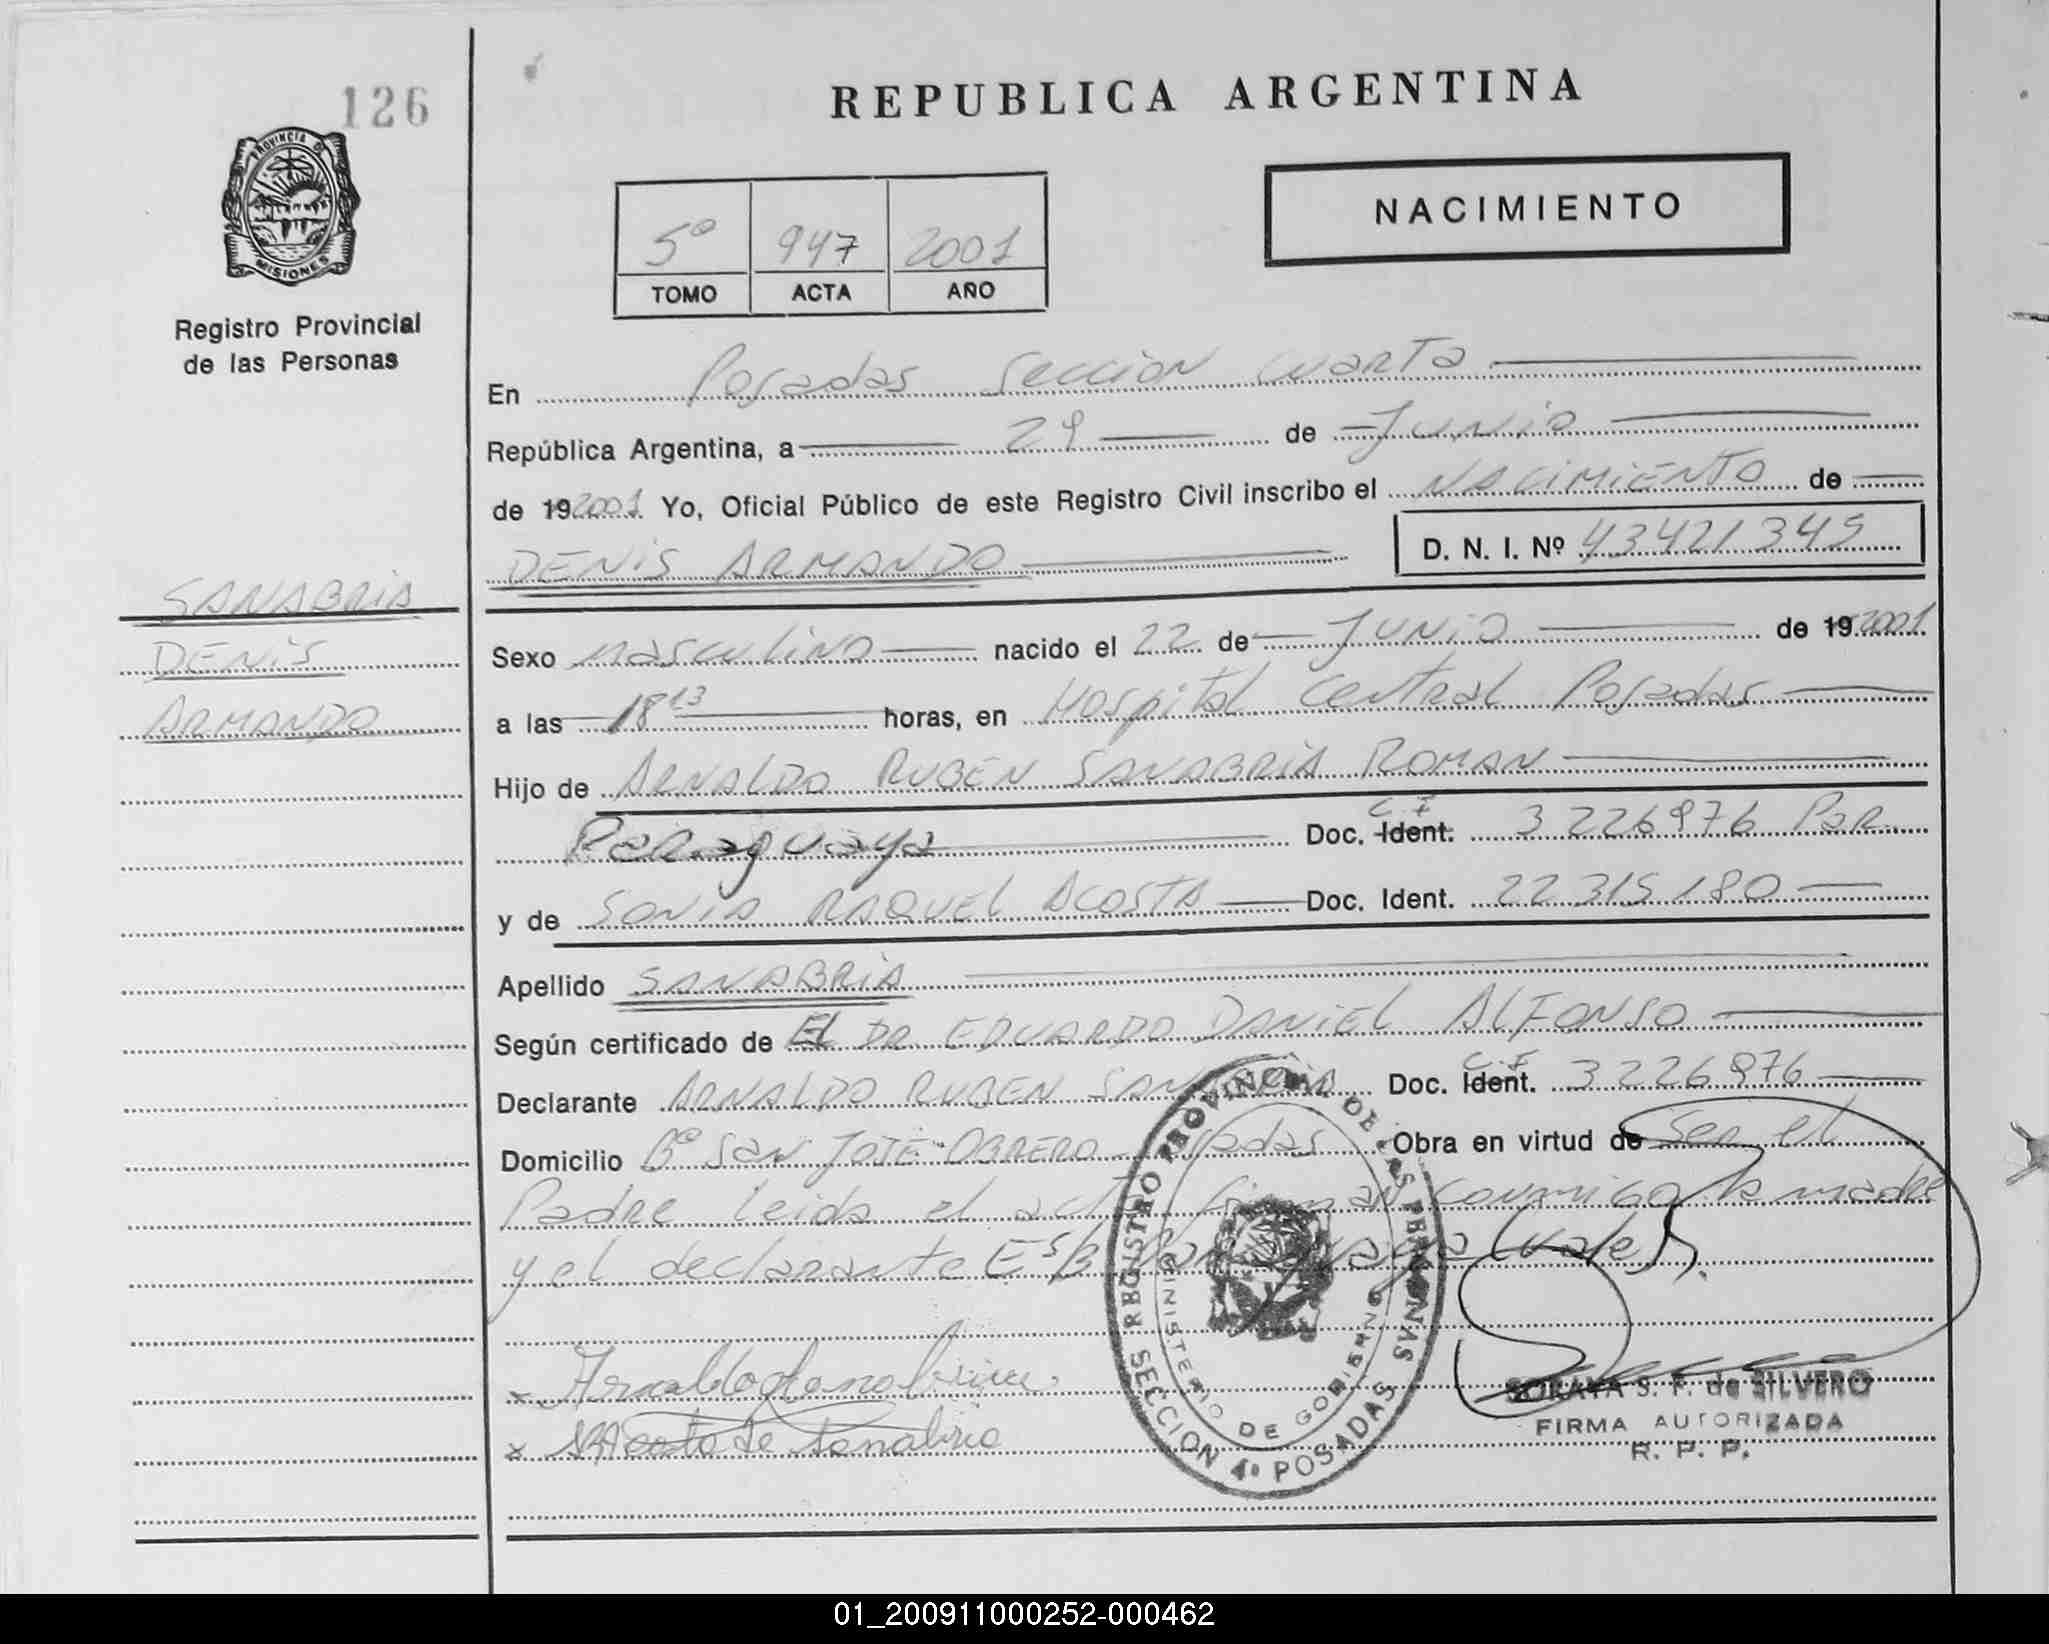 126
REPUBLICA ARGENTINA
PROVINCIA DE MISIONES
Registro Provincial
de las Personas
NACIMIENTO
5º 947 2001
TOMO ACTA AÑO
En Posadas Sección Cuarta
República Argentina, a 29 de Junio
de 192001 Yo, Oficial Público de este Registro Civil inscribo el NACIMIENTO de
DENIS ARMANDO D. N. I. Nº 43421345
SANABRIA
DENIS
ARMANDO
Sexo masculino nacido el 22 de Junio de 192001
a las 18 13 horas, en Hospital Central Posadas
Hijo de ARNALDO RUBEN SANABRIA ROMAN
Paraguaya Doc. Ident. C.I 3226976 Par
y de SONIA RAQUEL ACOSTA Doc. Ident. 22315180
Apellido SANABRIA
Según certificado de EL DR. EDUARDO DANIEL ALFONSO
Declarante ARNALDO RUBEN SANABRIA Doc. Ident. C.I 3226976
Domicilio Bº SAN JOSE OBRERO Posadas Obra en virtud de ser el
Padre leida el acta firman conmigo la madre
y el declarante E S/B Paraguaya (vale)
REGISTRO PROVINCIAL DE LAS PERSONAS
MINISTERIO DE GOBIERNO
SECCION 4º POSADAS
SORAYA S. F. de SILVERO
FIRMA AUTORIZADA
R. P. P.
01_200911000252-000462